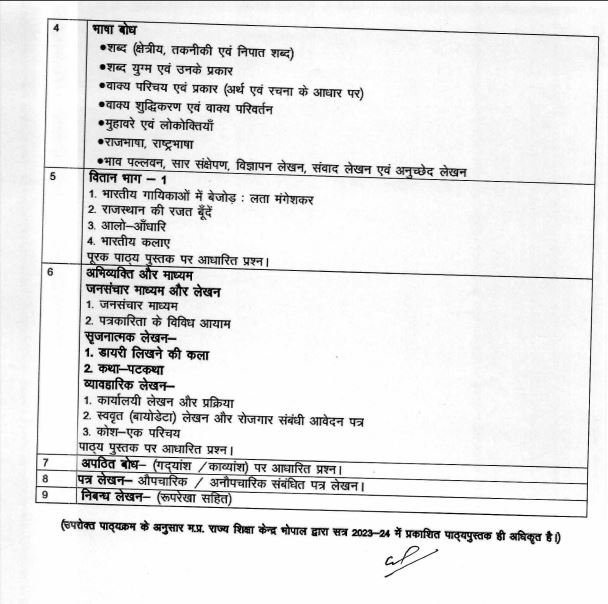 4 भाषा बोध
●शब्द (क्षेत्रीय, तकनीकी एवं निपात शब्द)
●शब्द युग्म एवं उनके प्रकार
●वाक्य परिचय एवं प्रकार (अर्थ एवं रचना के आधार पर)
●वाक्य शुद्धिकरण एवं वाक्य परिवर्तन
●मुहावरे एवं लोकोक्तियाँ
●राजभाषा, राष्ट्रभाषा
●भाव पल्लवन, सार संक्षेपण, विज्ञापन लेखन, संवाद लेखन एवं अनुच्छेद लेखन
5 वितान भाग – 1
1. भारतीय गायिकाओं में बेजोड़ : लता मंगेशकर
2. राजस्थान की रजत बूँदें
3. आलो–आँधारि
4. भारतीय कलाए
पूरक पाठ्य पुस्तक पर आधारित प्रश्न।
6 अभिव्यक्ति और माध्यम
जनसंचार माध्यम और लेखन
1. जनसंचार माध्यम
2. पत्रकारिता के विविध आयाम
सृजनात्मक लेखन–
1. डायरी लिखने की कला
2. कथा–पटकथा
व्यावहारिक लेखन–
1. कार्यालयी लेखन और प्रक्रिया
2. स्ववृत (बायोडेटा) लेखन और रोजगार संबंधी आवेदन पत्र
3. कोश–एक परिचय
पाठ्य पुस्तक पर आधारित प्रश्न।
7 अपठित बोध– (गद्यांश /काव्यांश) पर आधारित प्रश्न।
8 पत्र लेखन– औपचारिक / अनौपचारिक संबंधित पत्र लेखन।
9 निबन्ध लेखन– (रूपरेखा सहित)
(उपरोक्त पाठ्यक्रम के अनुसार म.प्र. राज्य शिक्षा केन्द्र भोपाल द्वारा सत्र 2023–24 में प्रकाशित पाठ्यपुस्तक ही अधिकृत है।)